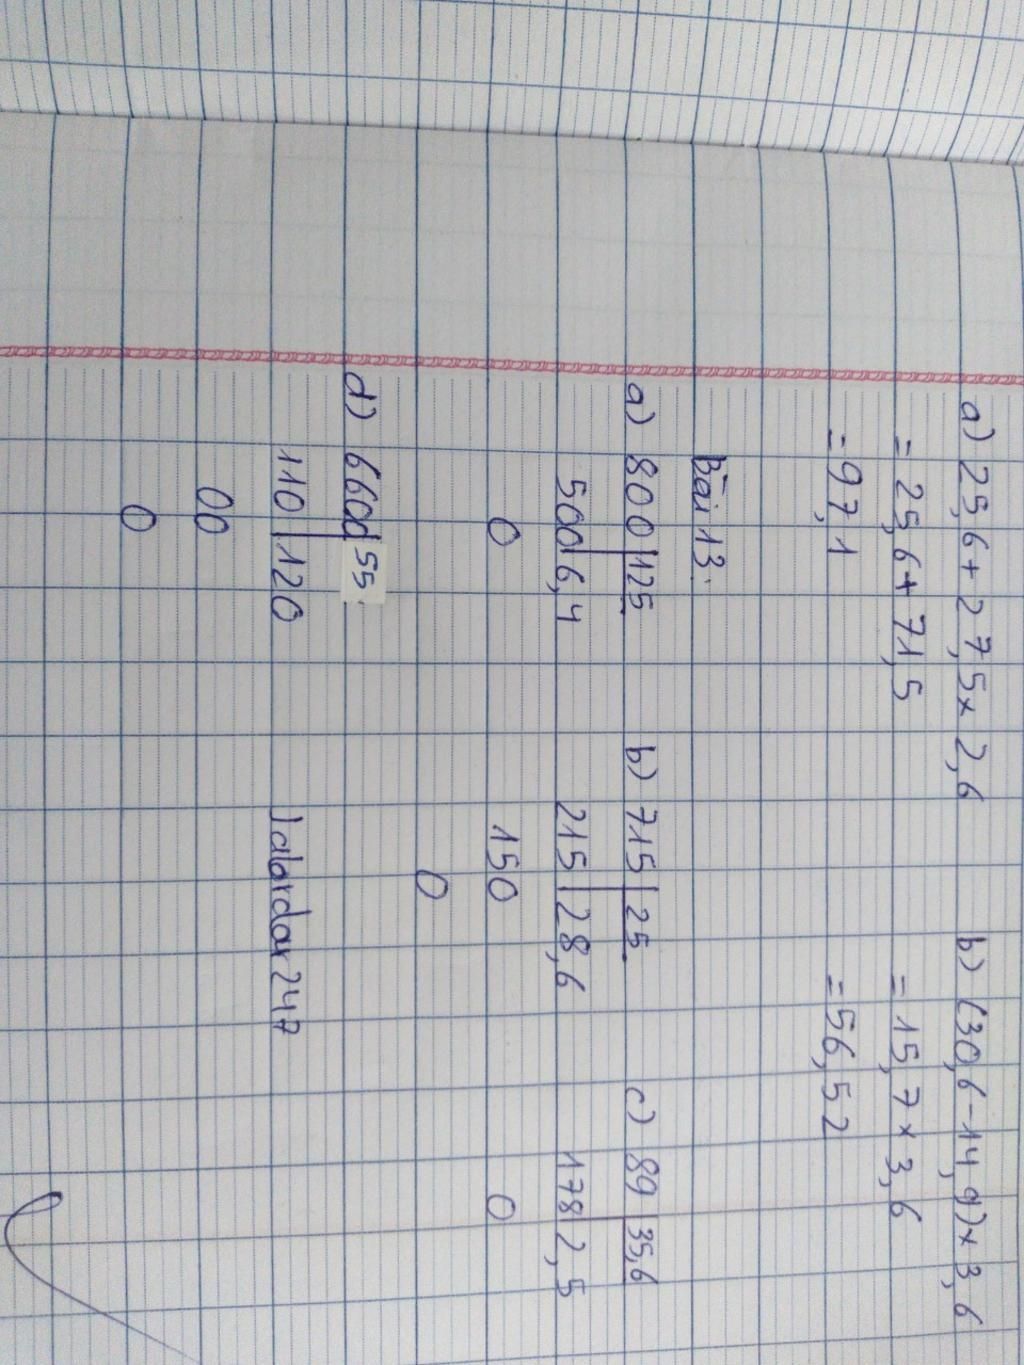 a) 25,6+27,5x2,6 b) (30,6-14,9)x3,6
= 25,6+71,5 = 15,7x3,6
= 97,1 = 56,52
Bài 13:
a) 800 125 b) 715 25 c) 89 35,6
500 6,4 215 28,6 178 2,5
0 150 0
0
d) 6600 55
110 120
00
0